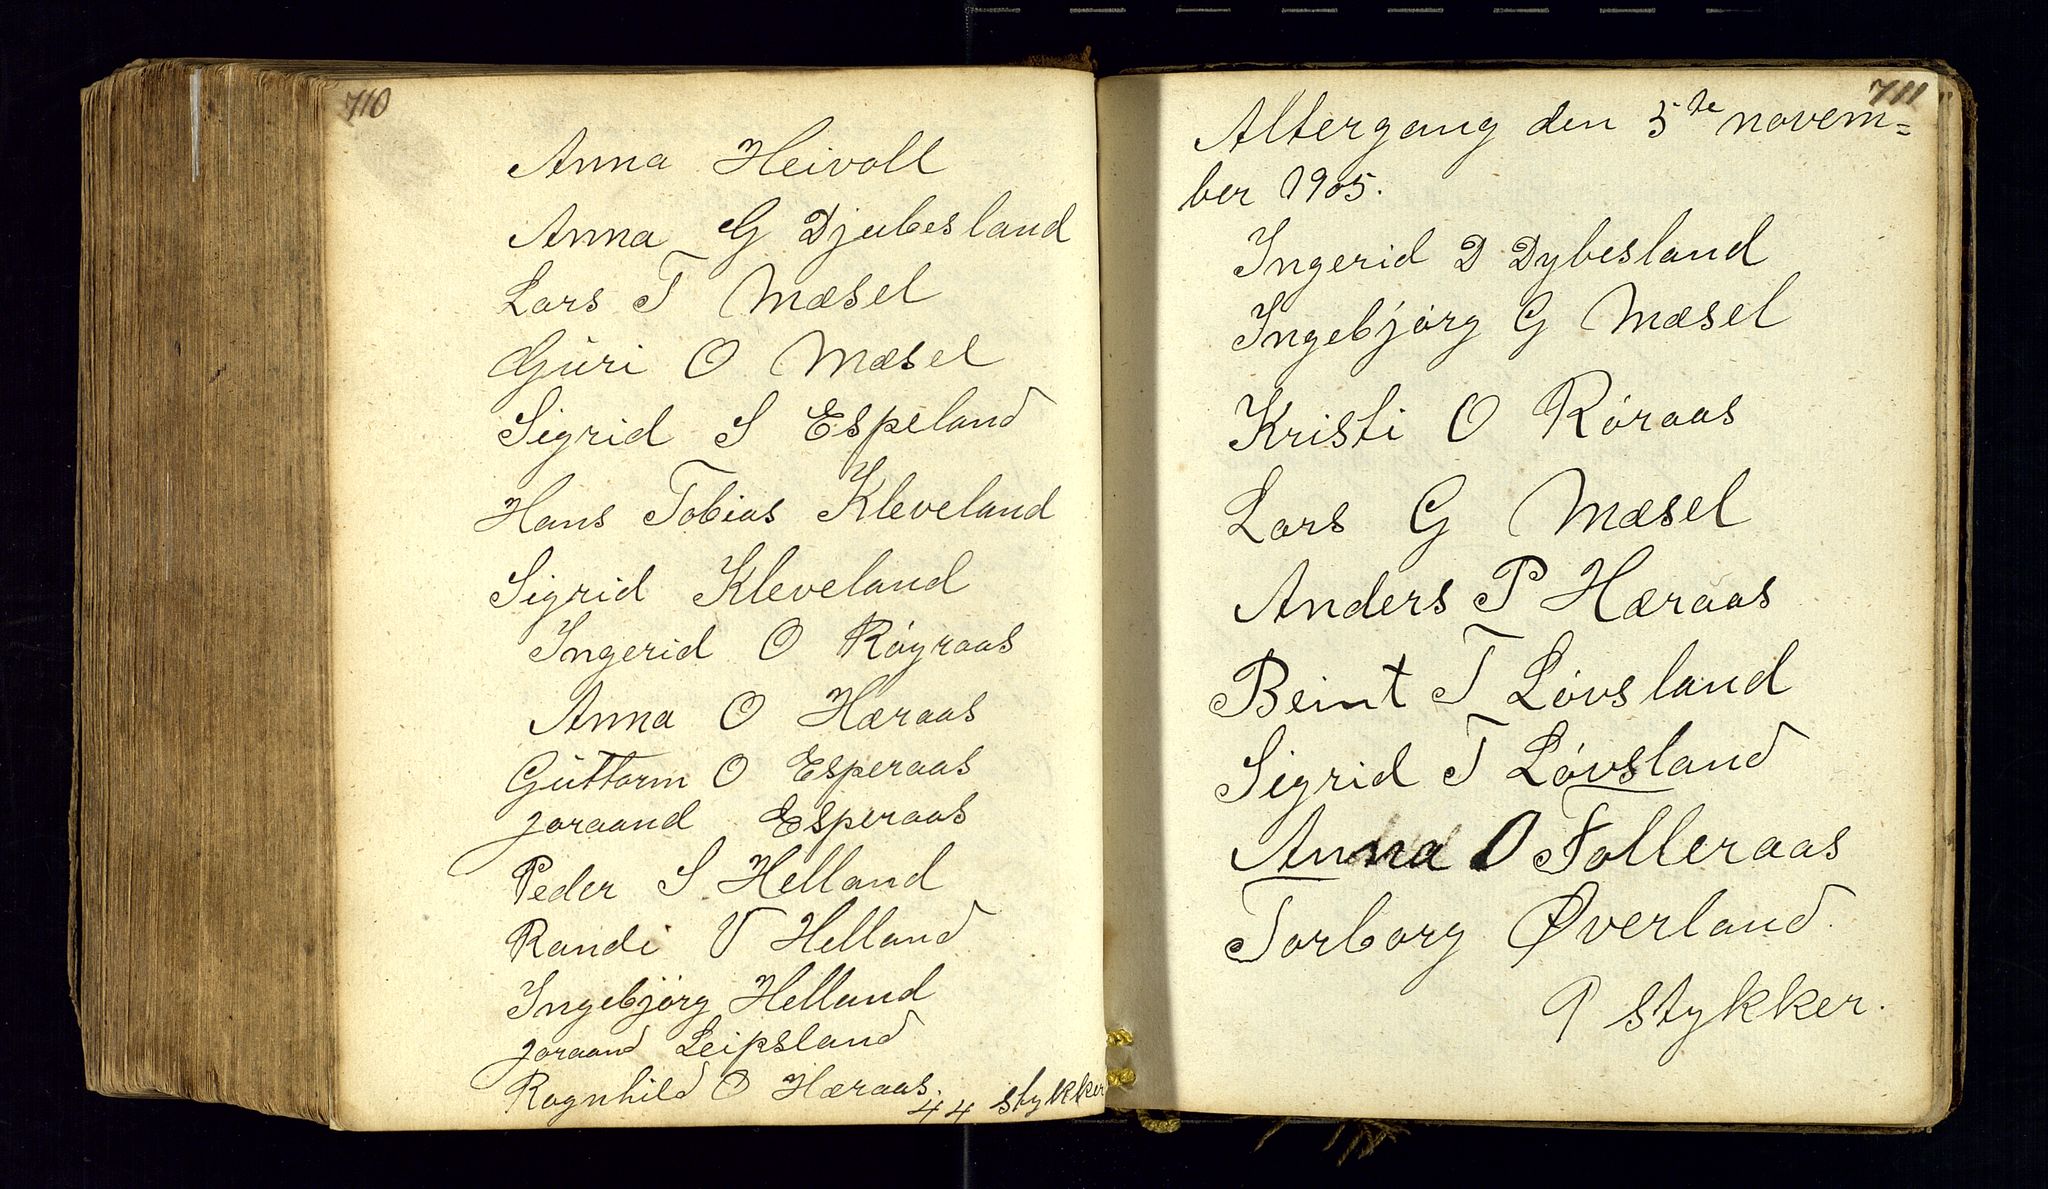 710
Anna Heivoll
Anna G Djubesland
Lars T Mæsel
Guri O Mæsel
Sigrid S Espeland
Hans Tobias Kleveland
Sigrid Kleveland
Ingerid O Röyraas
Anna O Hæraas
Guttorm O Esperaas
Joraand Esperaas
Peder S Helland
Randi V Helland
Ingebjørg Helland
Joraand Leipsland
Rognhild O Hæraas.
44 stykker
711
Altergang den 5te novem=
ber 1905.
Ingerid D Dybesland
Ingebjørg G Mæsel
Kristi O Röraas
Lars G Mæsel
Anders P Hæraas
Beint T Løvsland
Sigrid T Løvsland
Anna O Folleraas
Torborg Øverland.
9 stykker.